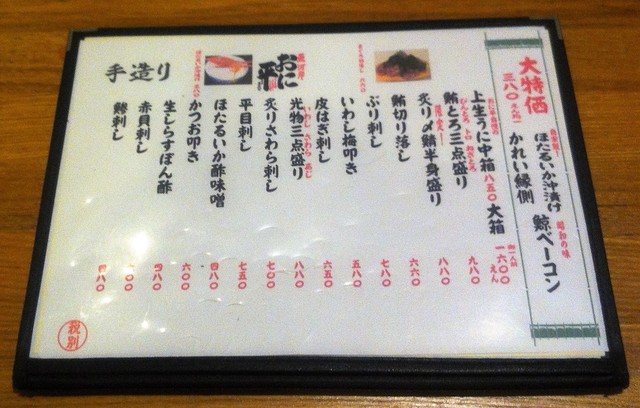 大特価
三八〇えん均一
自家製！
ほたるいか沖漬け
かれい縁側
昭和の味
鯨ベーコン
上生うに中箱八五〇大箱
一六〇〇えん
鮪とろ三点盛り
九八〇
炙り〆鯖半身盛り
八八〇
鮪切り落し
六六〇
ぶり刺し
七八〇
いわし梅叩き
五八〇
皮はぎ刺し
六五〇
いわし さわら あじ
光物三点盛り
八八〇
炙りさわら刺し
七〇〇
平目刺し
七五〇
ほたるいか酢味噌
四八〇
かつお叩き
六〇〇
生しらすぽん酢
四八〇
赤貝刺し
鯵刺し
四八〇
おに平
手造り
税別